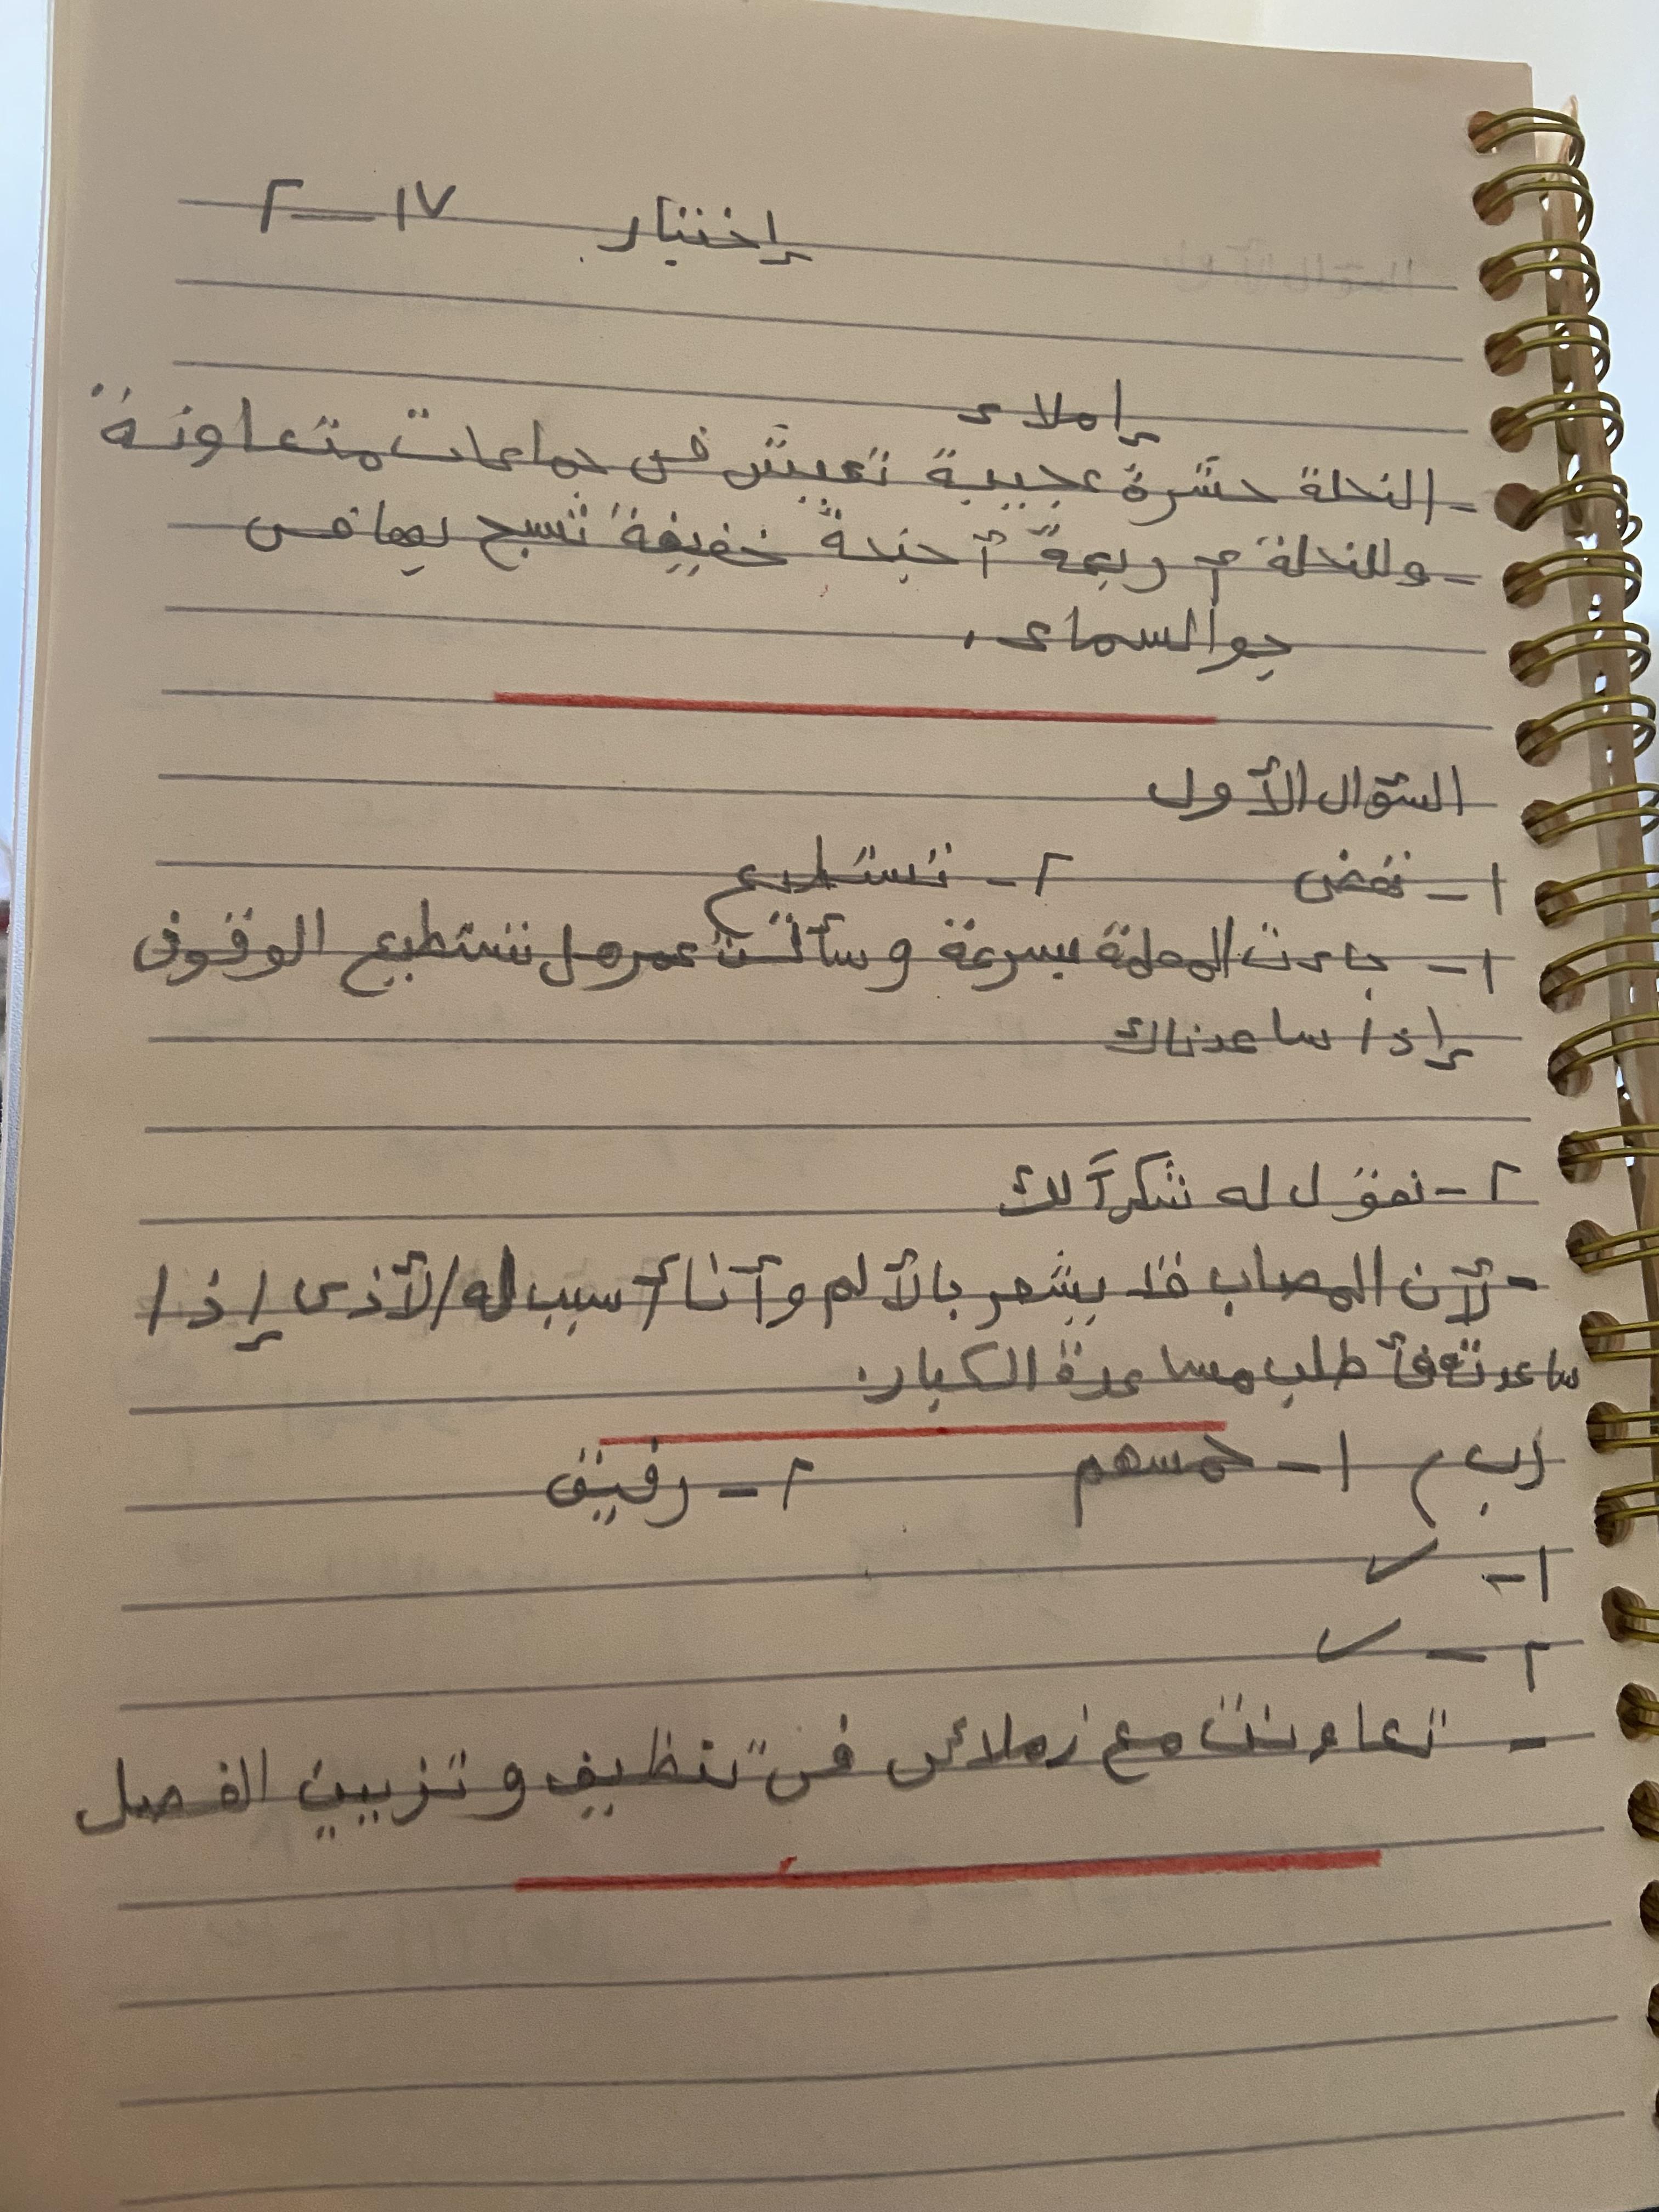 إختبار ١٧ - ٢
إملاء
- النحلة حشرة عجيبة تعيش في جماعات متعاونة
- وللنحلة أربعة أجنحة خفيفة تسبح بها في
جو السماء.
السؤال الأول
١ - نهض ٢ - تستطيع
١ - جاءت المعلمة بسرعة وسألت عمر هل تستطيع الوقوف
إذا ساعدناك
٢ - نقول له شكراً لك
- لأن المصاب قد يشعر بالألم وأنا أسبب له الأذى إذا
ساعدته فأطلب مساعدة الكبار.
(ب) ١ - ٢ - رفيق
١ - ✓
٢ - ✓
- تعاونت مع زملائي في تنظيف وتزيين الفصل